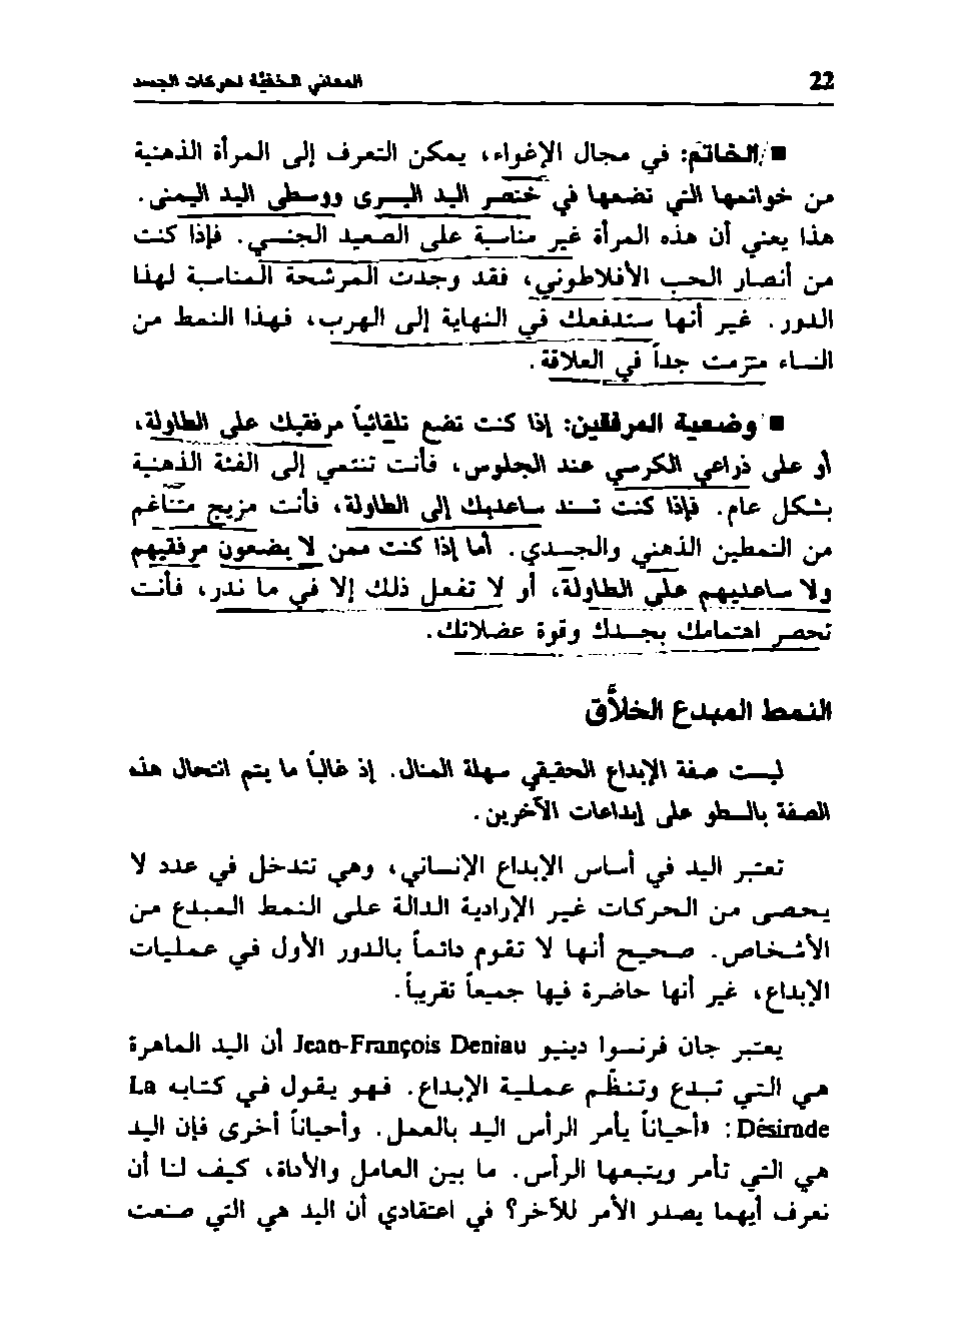 22
المعاني الخفيّة لحركات الجسد
■ الخاتم: في مجال الإغواء، يمكن التعرف إلى المرأة الذهنية
من خواتمها التي تضعها في خنصر اليد اليسرى ووسطى اليد اليمنى.
هذا يعني أن هذه المرأة غير مناسبة على الصعيد الجنسي. فإذا كنت
من أنصار الحب الأفلاطوني، فقد وجدت المرشحة المناسبة لهذا
الدور. غير أنها ستدفعك في النهاية إلى الهرب، فهذا النمط من
النساء متزمت جداً في العلاقة.
■ وضعية المرفقين: إذا كنت تضع تلقائياً مرفقيك على الطاولة،
أو على ذراعي الكرسي عند الجلوس، فأنت تنتمي إلى الفئة الذهنية
بشكل عام. فإذا كنت تسند ساعديك إلى الطاولة، فأنت مزيج متناغم
من النمطين الذهني والجسدي. أما إذا كنت ممن لا يضعون مرفقيهم
ولا ساعديهم على الطاولة، أو لا تفعل ذلك إلا في ما ندر، فأنت
تحصر اهتمامك بجسدك وقوة عضلاتك.
النمط المبدع الخلاَّق
ليست صفة الإبداع الحقيقي سهلة المنال. إذ غالباً ما يتم انتحال هذه
الصفة بالسطو على إبداعات الآخرين.
تعتبر اليد في أساس الإبداع الإنساني، وهي تتدخل في عدد لا
يحصى من الحركات غير الإرادية الدالة على النمط المبدع من
الأشخاص. صحيح أنها لا تقوم دائماً بالدور الأول في عمليات
الإبداع، غير أنها حاضرة فيها جميعاً تقريباً.
يعتبر جان فرنسوا دينيو Jean-François Deniau أن اليد الماهرة
هي التي تبدع وتنظّم عملية الإبداع. فهو يقول في كتابه La
Désirade: «أحياناً يأمر الرأس اليد بالعمل. وأحياناً أخرى فإن اليد
هي التي تأمر ويتبعها الرأس. ما بين العامل والأداة، كيف لنا أن
نعرف أيهما يصدر الأمر للآخر؟ في اعتقادي أن اليد هي التي صنعت